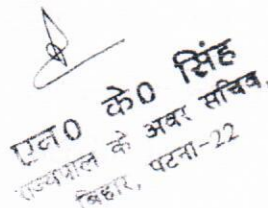 एल0 के0 सिंह
राज्यपाल के अवर सचिव,
बिहार, पटना-22